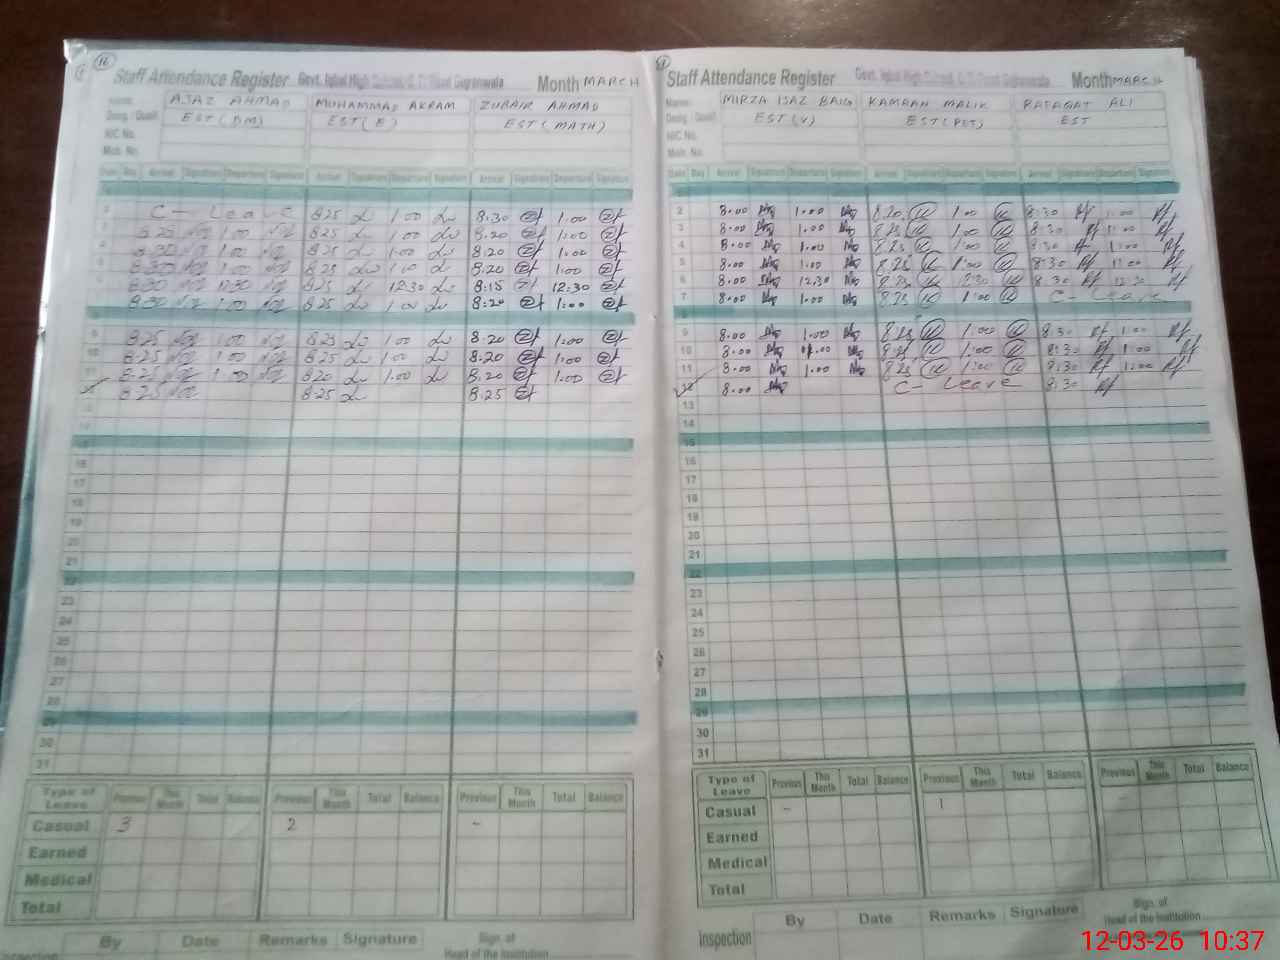 16
Staff Attendance Register Govt. Iqbal High School, G. T. Road Gujranwala Month MARCH
Name: AJAZ AHMAD MUHAMMAD AKRAM ZUBAIR AHMAD
Desig. / Qualif. EST (DM) EST (E) EST (MATH)
NIC No.
Mob. No.
Date Day Arrival Signature Departure Signature Arrival Signature Departure Signature Arrival Signature Departure Signature
2 C - Leave 8.25 1.00 8:30 1.00
3 8.25 1.00 8.25 1.00 8.20 1:00
4 8.30 1.00 8.25 1.00 8:20 1:00
5 8.30 1.00 8.25 1.00 8.20 1:00
6 8.30 12.30 8.25 12.30 8:15 12:30
7 8.30 1.00 8.25 1.00 8:20 1:00
9 8.25 1.00 8.25 1.00 8.20 1:00
10 8.25 1.00 8.25 1.00 8.20 1:00
11 8.25 1.00 8.20 1.00 8.20 1:00
8.25 8.25 8.25
13
14
15
16
17
18
19
20
21
22
23
24
25
26
27
28
29
30
31
Type of Leave Previous This Month Total Balance Previous This Month Total Balance Previous This Month Total Balance
Casual 3 2 -
Earned
Medical
Total
By Date Remarks Signature Sign. of
Inspection Head of the Institution
Staff Attendance Register Govt. Iqbal High School, G. T. Road Gujranwala Month MARCH
Name: MIRZA IJAZ BAIG KAMRAN MALIK RAFAQAT ALI
Desig. / Qualif. EST (V) EST (PET) EST
NIC No.
Mob. No.
Date Day Arrival Signature Departure Signature Arrival Signature Departure Signature Arrival Signature Departure Signature
2 8.00 1.00 8.20 1.00 8:30 1:00
3 8.00 1.00 8.25 1.00 8:30 1:00
4 8.00 1.00 8.25 1.00 8:30 1:00
5 8.00 1.00 8.25 1:00 8:30 1:00
6 8.00 12.30 8.25 12:30 8:30 12:30
7 8.00 1.00 8.25 1:00 C - Leave
8
9 8.00 1.00 8.25 1:00 8:30 1:00
10 8.00 1.00 8.25 1:00 8:30 1:00
11 8.00 1.00 8.25 1:00 8:30 1:00
12 8.00 C - Leave 8:30
13
14
15
16
17
18
19
20
21
22
23
24
25
26
27
28
29
30
31
Type of Leave Previous This Month Total Balance Previous This Month Total Balance Previous This Month Total Balance
Casual - 1 -
Earned
Medical
Total
By Date Remarks Signature Sign. of
Inspection Head of the Institution
12-03-26 10:37